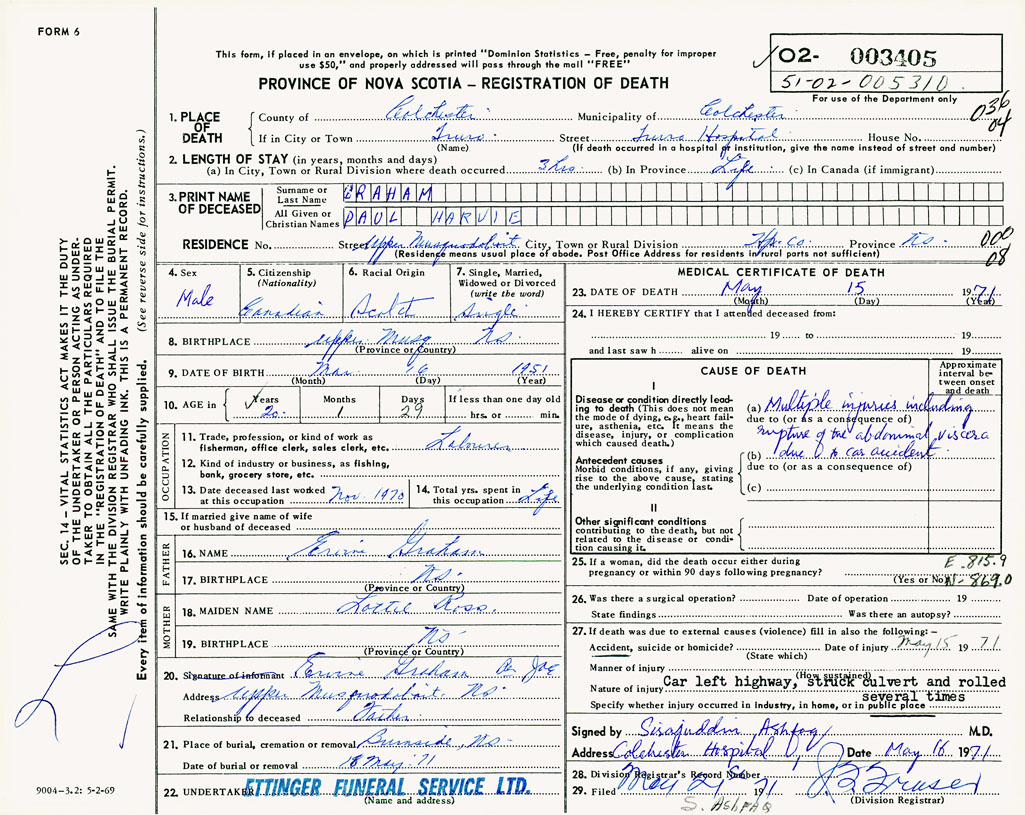 FORM 6
This form, if placed in an envelope, on which is printed "Dominion Statistics – Free, penalty for improper
use $50," and properly addressed will pass through the mail "FREE"
PROVINCE OF NOVA SCOTIA – REGISTRATION OF DEATH
02- 003405
51-02-005310
For use of the Department only
036
04
1. PLACE OF DEATH
County of Colchester Municipality of Colchester
If in City or Town Truro Street Truro Hospital House No.
(Name) (If death occurred in a hospital or institution, give the name instead of street and number)
2. LENGTH OF STAY (in years, months and days)
(a) In City, Town or Rural Division where death occurred 3 hrs. (b) In Province Life (c) In Canada (if immigrant)
3. PRINT NAME OF DECEASED
Surname or Last Name GRAHAM
All Given or Christian Names PAUL HARVIE
RESIDENCE No. Street Upper Musquodoboit City, Town or Rural Division Hfx. Co. Province N.S.
(Residence means usual place of abode. Post Office Address for residents in rural parts not sufficient)
000
08
4. Sex
Male
5. Citizenship
(Nationality)
Canadian
6. Racial Origin
Scotch
7. Single, Married,
Widowed or Divorced
(write the word)
Single
8. BIRTHPLACE Upper Musq N.S.
(Province or Country)
9. DATE OF BIRTH Mar. 16 1951
(Month) (Day) (Year)
10. AGE in
Years 20
Months 1
Days 29
If less than one day old
hrs. or min.
OCCUPATION
11. Trade, profession, or kind of work as
fisherman, office clerk, sales clerk, etc. Labourer
12. Kind of industry or business, as fishing,
bank, grocery store, etc.
13. Date deceased last worked
at this occupation Nov. 1970
14. Total yrs. spent in
this occupation Life
15. If married give name of wife
or husband of deceased
FATHER
16. NAME Graham
17. BIRTHPLACE N.S.
(Province or Country)
MOTHER
18. MAIDEN NAME Lottie Ross.
19. BIRTHPLACE N.S.
(Province or Country)
20. Signature of informant Graham
Address Upper Musquodoboit, N.S.
Relationship to deceased Father
21. Place of burial, cremation or removal Burnside, N.S.
Date of burial or removal 18 May. 71
22. UNDERTAKER ETTINGER FUNERAL SERVICE LTD.
(Name and address)
MEDICAL CERTIFICATE OF DEATH
23. DATE OF DEATH May 15 1971
(Month) (Day) (Year)
24. I HEREBY CERTIFY that I attended deceased from:
19 to 19
and last saw h alive on 19
CAUSE OF DEATH
Approximate
interval be-
tween onset
and death
I
Disease or condition directly lead-
ing to death (This does not mean
the mode of dying, e.g., heart fail-
ure, asthenia, etc. It means the
disease, injury, or complication
which caused death.)
(a) Multiple injuries including
due to (or as a consequence of)
rupture of the abdominal viscera
(b) due to car accident.
due to (or as a consequence of)
(c)
Antecedent causes
Morbid conditions, if any, giving
rise to the above cause, stating
the underlying condition last.
II
Other significant conditions
contributing to the death, but not
related to the disease or condi-
tion causing it.
25. If a woman, did the death occur either during
pregnancy or within 90 days following pregnancy?
(Yes or No)
E-815.9
N-869.0
26. Was there a surgical operation? Date of operation 19
State findings Was there an autopsy?
27. If death was due to external causes (violence) fill in also the following:–
Accident, suicide or homicide? Date of injury May 15 1971
(State which)
Manner of injury
(How sustained)
Nature of injury Car left highway, struck culvert and rolled
several times
Specify whether injury occurred in industry, in home, or in public place
Signed by Sirajuddin Ashfaq M.D.
Address Colchester Hospital Date May 16 1971
28. Division Registrar's Record Number
29. Filed May 1971
(Division Registrar)
S. ASHFAQ
SEC. 14 – VITAL STATISTICS ACT MAKES IT THE DUTY
OF THE UNDERTAKER OR PERSON ACTING AS UNDER-
TAKER TO OBTAIN ALL THE PARTICULARS REQUIRED
IN THE "REGISTRATION OF DEATH" AND TO FILE THE
SAME WITH THE DIVISION REGISTRAR WHO SHALL ISSUE THE BURIAL PERMIT.
WRITE PLAINLY WITH UNFADING INK. THIS IS A PERMANENT RECORD.
Every item of information should be carefully supplied. (See reverse side for instructions.)
9004-3.2: 5-2-69